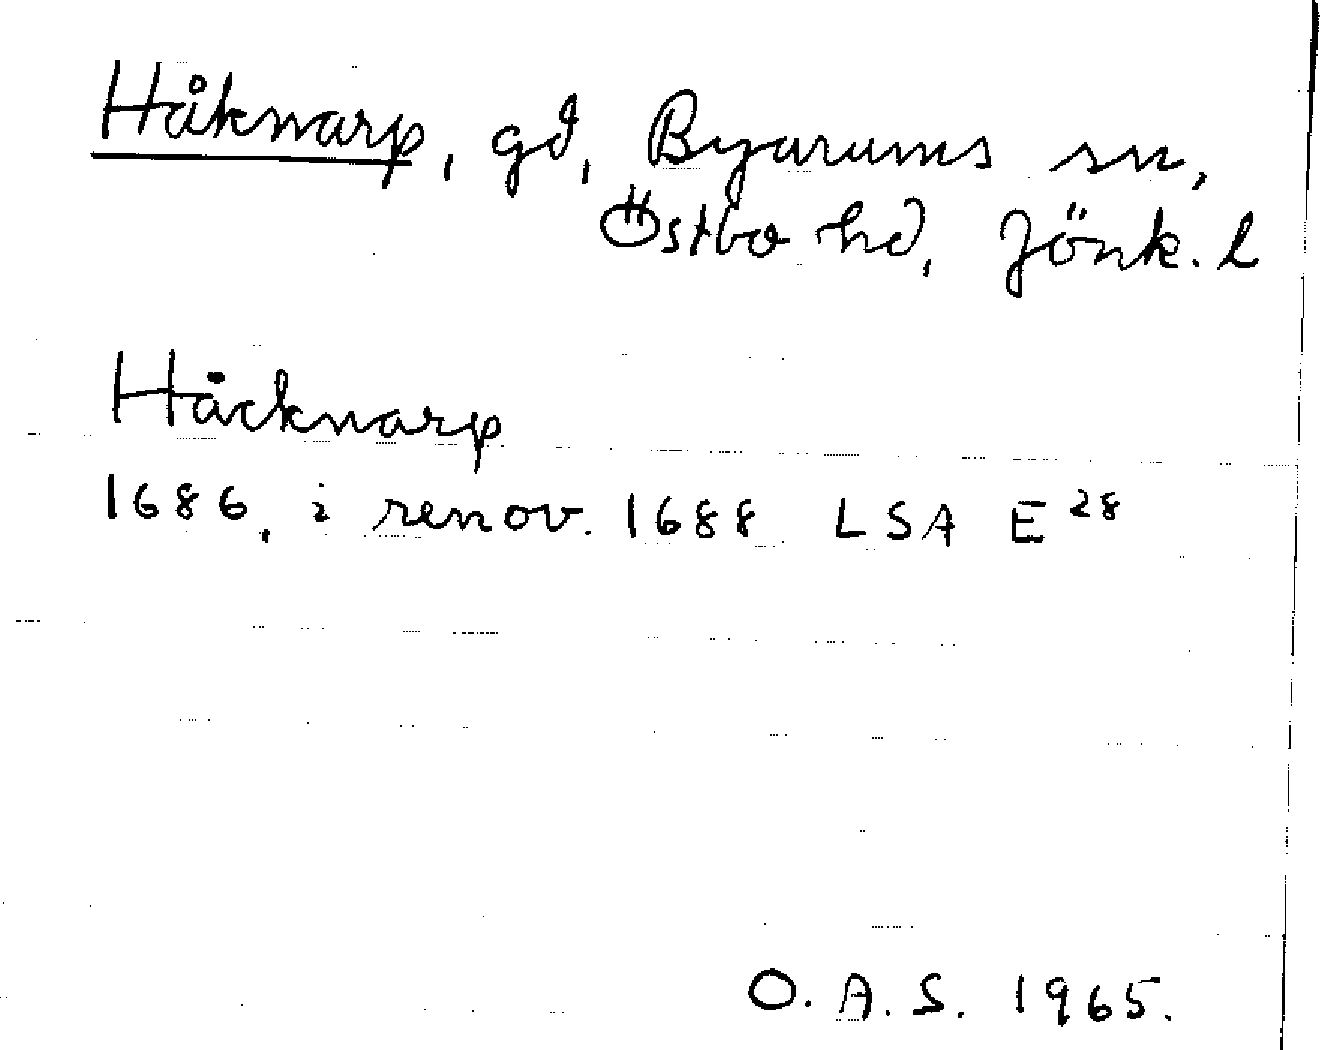 Håknarp, gd, Byarums sn,
Östbo hd, Jönk. l
Håcknarp
1686, i renov. 1688 LSA E²⁸
O. A. S. 1965.